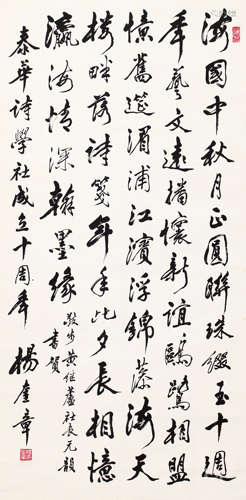 海國中秋月正圓聯珠綴玉十週
年藝文遠播懷新誼鷗鷺相盟
憶舊筵湄浦江濱浮錦藻海天
樓畔落詩箋年年此夕長相憶
瀛海情深翰墨緣
敬步黃繼蘆社長元韻
書賀
泰華詩學社成立十周年 楊奎章